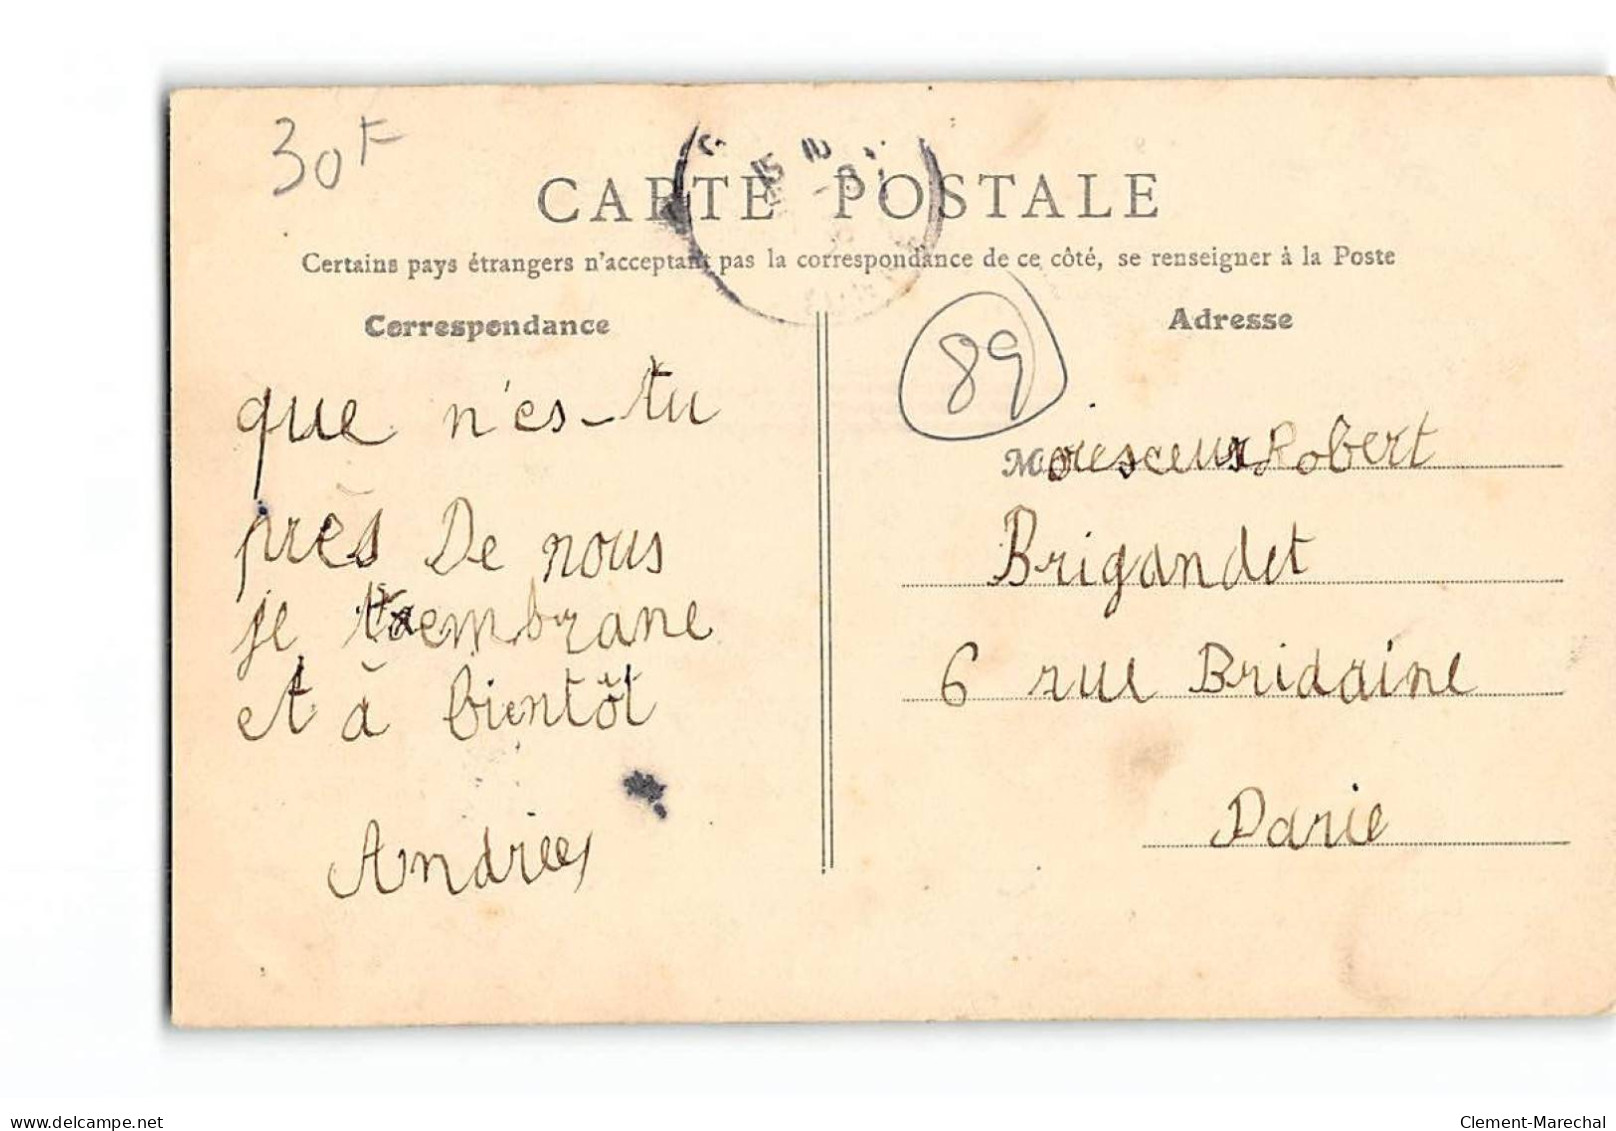 30F
CARTE POSTALE
Certains pays étrangers n'acceptant pas la correspondance de ce côté, se renseigner à la Poste
Correspondance
Adresse
89
que n'es-tu
près De nous
je
et à bientôt
Andrée
Robert
Brigandet
6 rue Bridaine
Parie
www.delcampe.net
Clement-Marechal